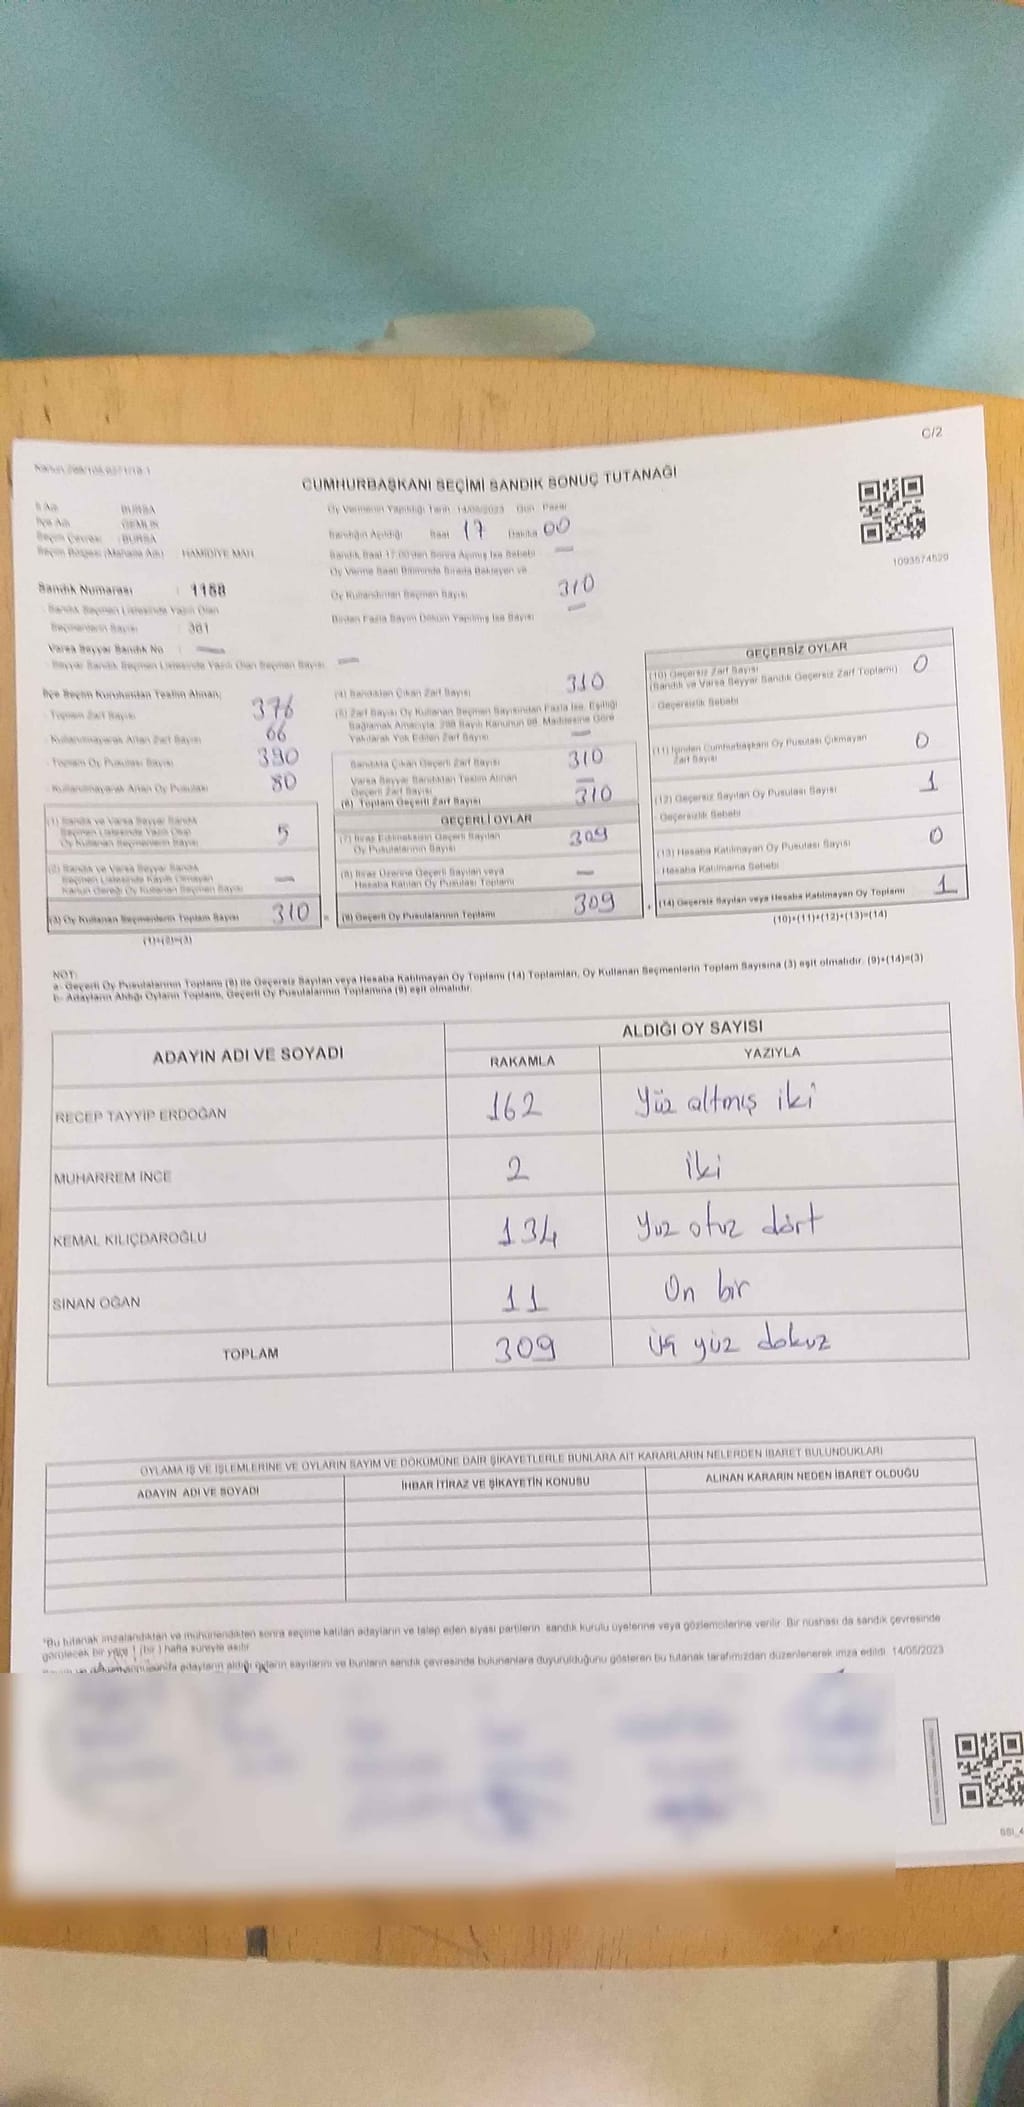 C/2
CUMHURBAŞKANI SEÇİMİ SANDIK SONUÇ TUTANAĞI
İl Adı : BURSA
İlçe Adı : GEMLİK
Seçim Çevresi : BURSA
Seçim Bölgesi (Mahalle Adı) : HAMİDİYE MAH
Sandık Numarası : 1158
Sandık Seçmen Listesinde Yazılı Olan
Seçmenlerin Sayısı : 381
Varsa Seyyar Sandık No : —
Seyyar Sandık Seçmen Listesinde Yazılı Olan Seçmen Sayısı —
Oy Vermenin Yapıldığı Tarih 14/05/2023 Gün Pazar
Sandığın Açıldığı Saat 17 Dakika 00
Sandık Saat 17:00'den Sonra Açılmış İse Sebebi —
Oy Verme Saati Bitiminde Sırada Bekleyen ve
Oy Kullandırılan Seçmen Sayısı 310
Birden Fazla Sayım Döküm Yapılmış İse Sayısı —
1093574529
İlçe Seçim Kurulundan Teslim Alınan;
Toplam Zarf Sayısı 376
Kullanılmayarak Artan Zarf Sayısı 66
Toplam Oy Pusulası Sayısı 390
Kullanılmayarak Artan Oy Pusulası 80
(1) Sandık ve Varsa Seyyar Sandık
Seçmen Listesinde Yazılı Olup
Oy Kullanan Seçmenlerin Sayısı 5
(2) Sandık ve Varsa Seyyar Sandık
Seçmen Listesinde Kayıtlı Olmayan
Kanun Gereği Oy Kullanan Seçmen Sayısı —
(3) Oy Kullanan Seçmenlerin Toplam Sayısı 310
(1)+(2)=(3)
(4) Sandıktan Çıkan Zarf Sayısı 310
(5) Zarf Sayısı Oy Kullanan Seçmen Sayısından Fazla İse, Eşitliği
Sağlamak Amacıyla, 298 Sayılı Kanunun 98. Maddesine Göre
Yakılarak Yok Edilen Zarf Sayısı —
Sandıkta Çıkan Geçerli Zarf Sayısı 310
Varsa Seyyar Sandıktan Teslim Alınan
Geçerli Zarf Sayısı —
(6) Toplam Geçerli Zarf Sayısı 310
GEÇERLİ OYLAR
(7) İtiraz Edilmeksizin Geçerli Sayılan
Oy Pusulalarının Sayısı 309
(8) İtiraz Üzerine Geçerli Sayılan veya
Hesaba Katılan Oy Pusulası Toplamı —
(9) Geçerli Oy Pusulalarının Toplamı 309
GEÇERSİZ OYLAR
(10) Geçersiz Zarf Sayısı 0
(Sandık ve Varsa Seyyar Sandık Geçersiz Zarf Toplamı)
Geçersizlik Sebebi
(11) İçinden Cumhurbaşkanı Oy Pusulası Çıkmayan
Zarf Sayısı 0
(12) Geçersiz Sayılan Oy Pusulası Sayısı 1
Geçersizlik Sebebi
(13) Hesaba Katılmayan Oy Pusulası Sayısı 0
Hesaba Katılmama Sebebi
(14) Geçersiz Sayılan veya Hesaba Katılmayan Oy Toplamı 1
(10)+(11)+(12)+(13)=(14)
NOT:
a- Geçerli Oy Pusulalarının Toplamı (9) ile Geçersiz Sayılan veya Hesaba Katılmayan Oy Toplamı (14) Toplamları, Oy Kullanan Seçmenlerin Toplam Sayısına (3) eşit olmalıdır. (9)+(14)=(3)
b- Adayların Aldığı Oyların Toplamı, Geçerli Oy Pusulalarının Toplamına (9) eşit olmalıdır.
ADAYIN ADI VE SOYADI
ALDIĞI OY SAYISI
RAKAMLA YAZIYLA
RECEP TAYYİP ERDOĞAN 162 Yüz altmış iki
MUHARREM İNCE 2 İki
KEMAL KILIÇDAROĞLU 134 Yüz otuz dört
SİNAN OĞAN 11 On bir
TOPLAM 309 üç yüz dokuz
OYLAMA İŞ VE İŞLEMLERİNE VE OYLARIN SAYIM VE DÖKÜMÜNE DAİR ŞİKAYETLERLE BUNLARA AİT KARARLARIN NELERDEN İBARET BULUNDUKLARI
ADAYIN ADI VE SOYADI İHBAR İTİRAZ VE ŞİKAYETİN KONUSU ALINAN KARARIN NEDEN İBARET OLDUĞU
*Bu tutanak imzalandıktan ve mühürlendikten sonra seçime katılan adayların ve talep eden siyasi partilerin sandık kurulu üyelerine veya gözlemcilerine verilir. Bir nüshası da sandık çevresinde
görülecek bir yere 1 (bir) hafta süreyle asılır.
adayların aldığı oyların sayılarını ve bunların sandık çevresinde bulunanlara duyurulduğunu gösteren bu tutanak tarafımızdan düzenlenerek imza edildi. 14/05/2023